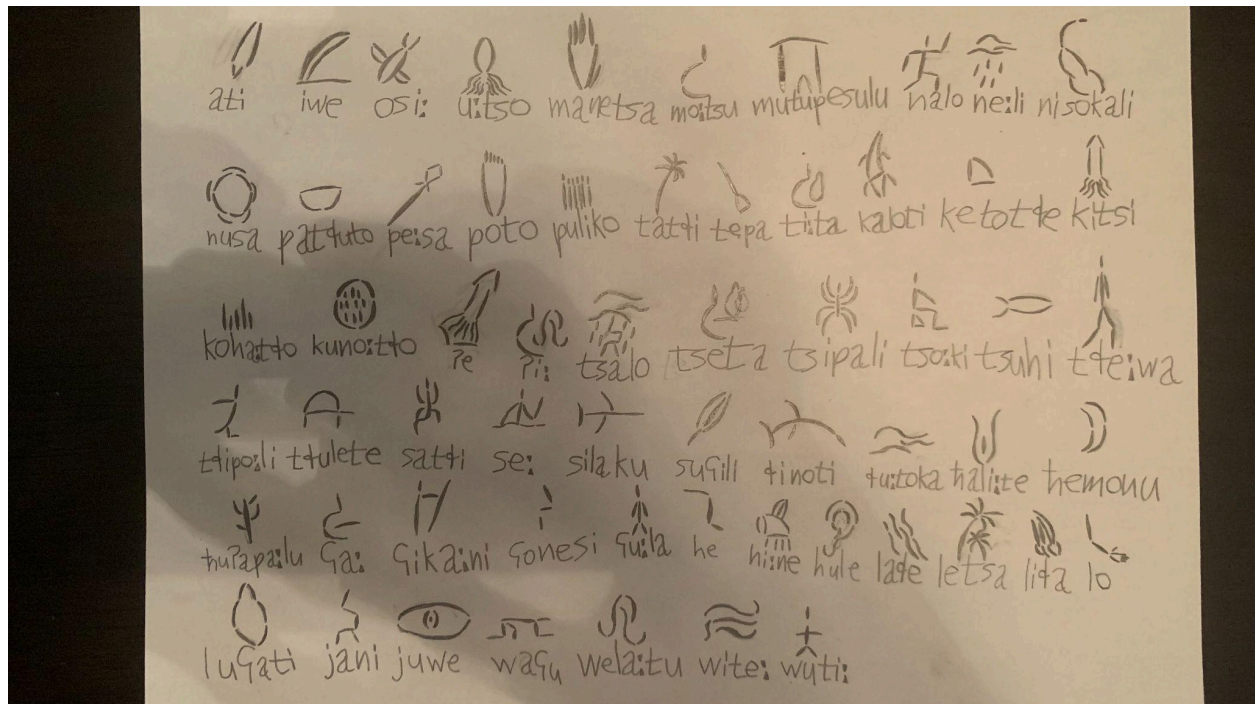 ati iwe osiː uːtso manetsa moːtsu mutupesulu nalo neːli nisokali
nusa patɬuto peːsa poto puliko tatɬi tepa tiːta kaloti ketotɬe kitsi
kohaːtɬo kunoːtɬo ʔe ʔiː tsalo tseta tsipali tsoːki tsuhi tɬeːwa
tɬipoːli tɬulete satɬi seː silaku suʕili ɬinoti ɬuːtoka ħaliːte ħemonu
ħuʔapaːlu ʕaː ʕikaːni ʕonesi ʕuːla he hiːne hule laɬe letsa liɬa lo
luʕati jani juwe waʕu welaːtu witeː wutiː